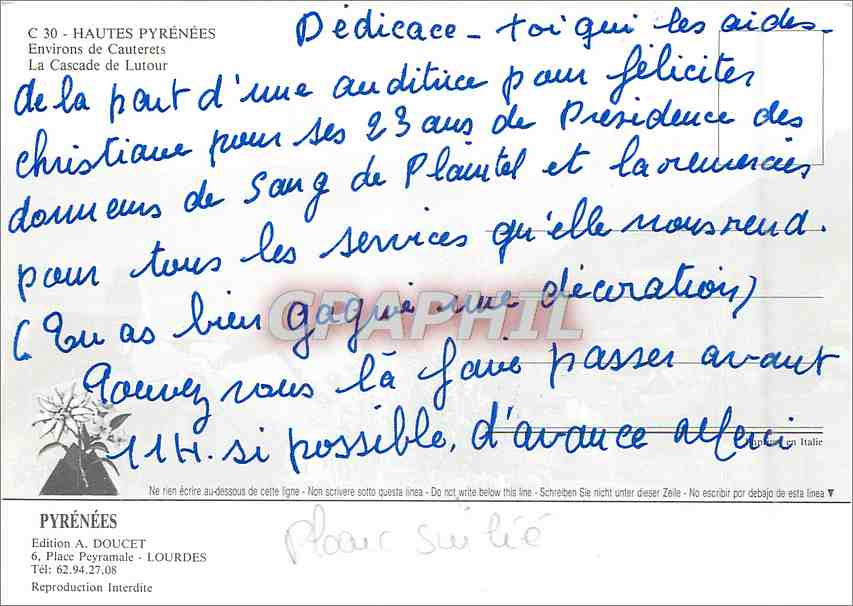 C 30 - HAUTES PYRÉNÉES
Environs de Cauterets
La Cascade de Lutour
Dédicace - toi qui les aides -
de la part d'une auditrice pour féliciter
christiane pour ses 23 ans de Présidence des
donneurs de Sang de Plaintel et la remercier
pour tous les services qu'elle nous rend.
(Tu as bien gagné une décoration)
Pouvez vous là faire passer avant
11H. si possible, d'avance Merci
CPAPHIL
Imprimé en Italie
Ne rien écrire au-dessous de cette ligne - Non scrivere sotto questa linea - Do not write below this line - Schreiben Sie nicht unter dieser Zeile - No escribir por debajo de esta linea ▼
PYRÉNÉES
Edition A. DOUCET
6, Place Peyramale - LOURDES
Tél: 62.94.27.08
Reproduction Interdite